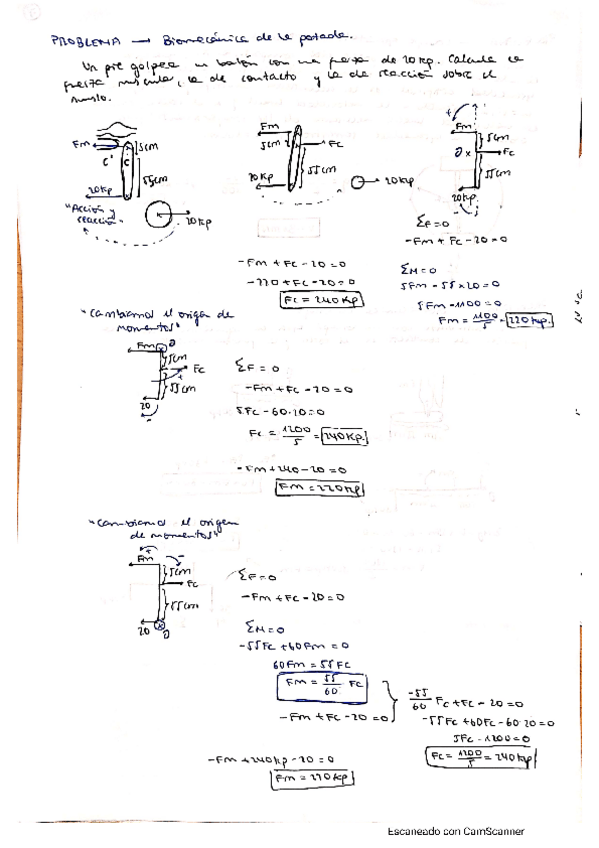 PROBLEMA → Biomecánica de la patada.
Un pie golpea un balón con una fuerza de 20kp. Calcula la
fuerza muscular, la de contacto y la de reacción sobre el
muslo.
Fm 5cm C' C 55cm 20kp 20kp
"Acción y
reacción"
Fm 5cm Fc 55cm 20kp 20kp
+ Fm 5cm Fc 55cm 20kp -
ΣF=0
-Fm + Fc - 20=0
ΣM=0
5Fm - 55x20=0
5Fm - 1100=0
Fm = 1100/5 = 220kp.
-Fm + Fc - 20=0
-220 + Fc - 20=0
Fc = 240kp
"Cambiamos el origen de
momentos"
Fm 5cm Fc + 55cm 20 -
ΣF = 0
-Fm + Fc - 20=0
5Fc - 60·20=0
Fc = 1200/5 = 240kp.
-Fm + 240 - 20=0
Fm = 220kp
"Cambiamos el origen
de momentos"
Fm + - 5cm Fc 55cm 20
ΣF=0
-Fm + Fc - 20=0
ΣM=0
-55Fc + 60Fm = 0
60Fm = 55Fc
Fm = 55/60 Fc
-Fm + Fc - 20=0
-55/60 Fc + Fc - 20=0
-55Fc + 60Fc - 60·20=0
5Fc - 1200=0
Fc = 1200/5 = 240kp
-Fm + 240kp - 20=0
Fm = 220kp
Escaneado con CamScanner